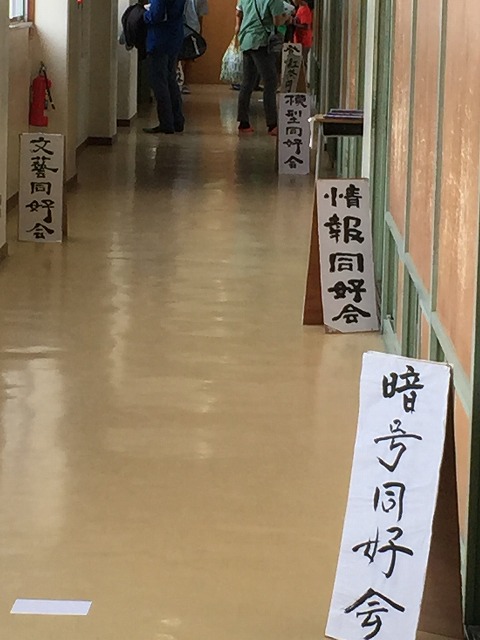 暗号同好会
情報同好会
文藝同好会
模型同好会